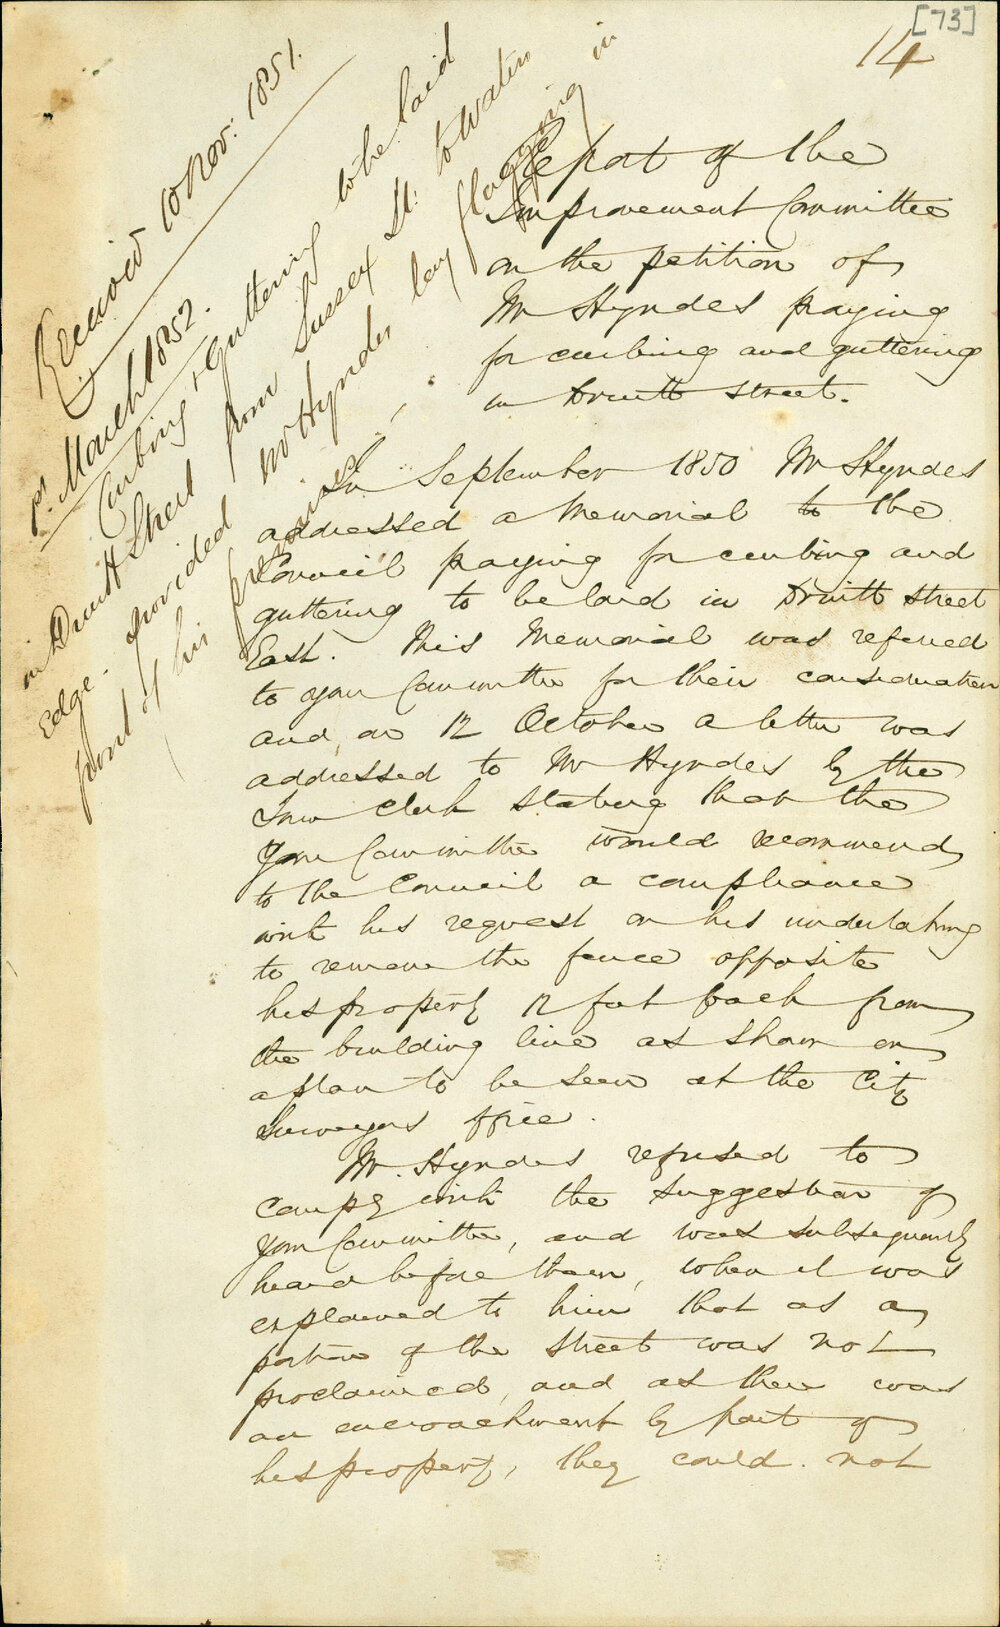 [73]
14
Received 10 Nov: 1851.
1st March 1852.
Curbing & Guttering to be laid
in Druitt Street from Sussex St. to Waters
Edge. provided Mr Hyndes lay flagging in
front of his premises.
Report of the
Improvement Committee
on the petition of
Mr Hyndes praying
for curbing and guttering
in Druitt street.
In September 1850 Mr Hyndes
addressed a Memorial to the
Council praying for curbing and
guttering to be laid in Druitt street
East. This Memorial was referred
to your Committee for their consideration
and, on 12 October a letter was
addressed to Mr Hyndes by the
Town Clerk stating that the
Your Committee would recommend
to the Council a compliance
with his request on his undertaking
to remove the fence opposite
his property 12 feet back from
the building line as shown on
a plan to be seen at the City
Surveyors office.
Mr. Hyndes refused to
comply with the suggestion of
your Committee, and was subsequently
heard before them, when it was
explained to him that as a
portion of the street was not
proclaimed, and as there was
an encroachment by part of
his property, they could not